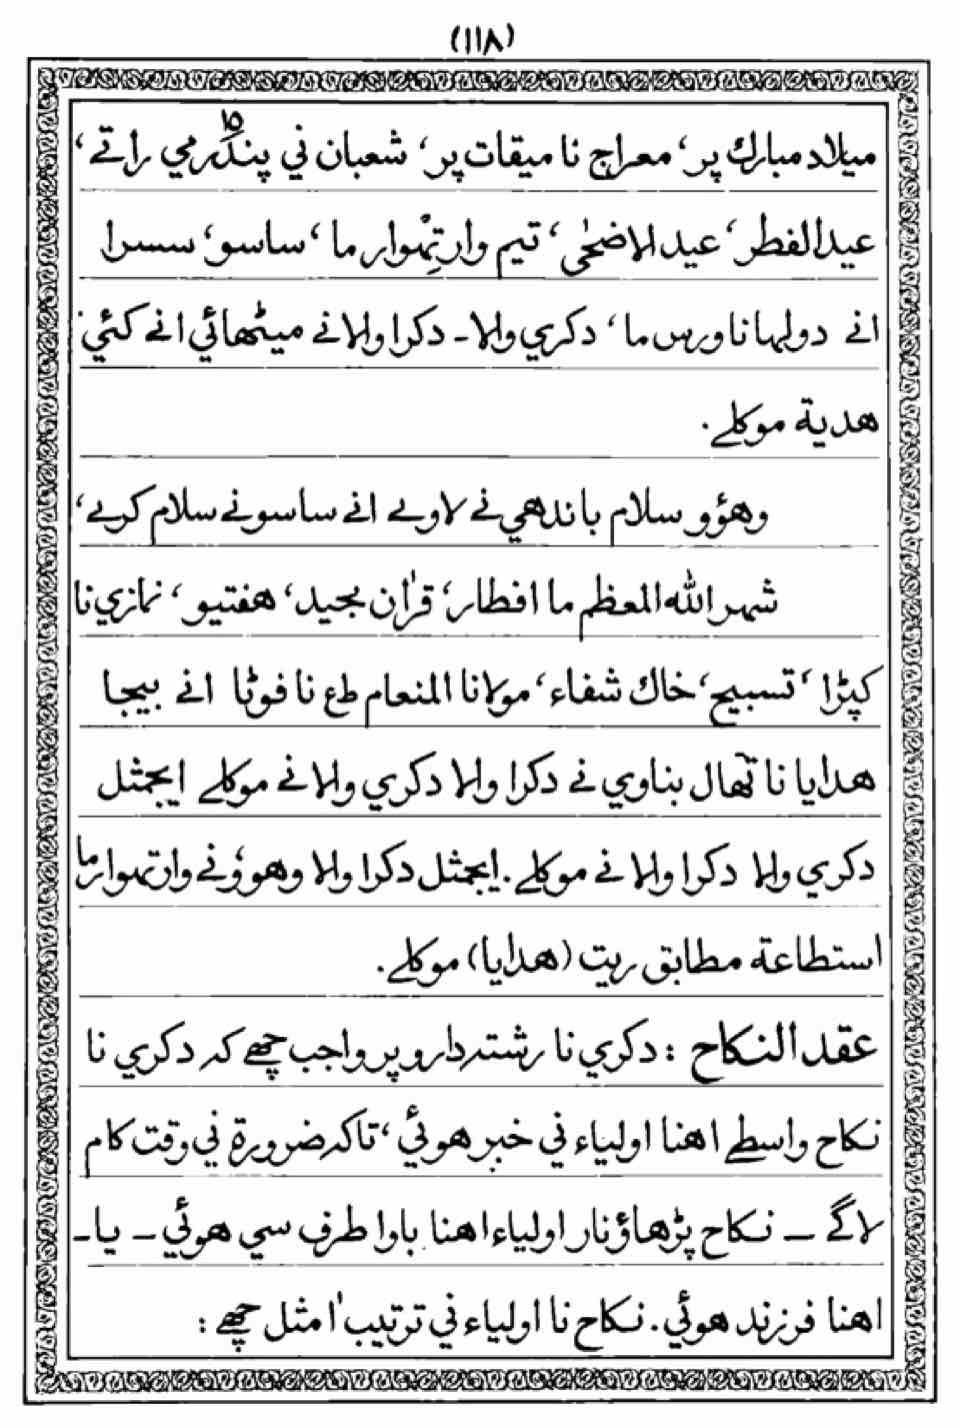 (١١٨)
ميلاد مبارك پر، معراج نا ميقات پر، شعبان ني پندرمي ١٥ راتے،
عيد الفطر، عيد الاضحٰى، تيم وار تِهْوار ما، ساسو، سسرا
انے دولها نا ورس ما، دكري والا ـ دكرا والا نے ميٹھائي انے كئي
هدية موكلے.
وهؤو سلام باندهي نے لاوے انے ساسو نے سلام كرے،
شهر الله المعظم ما افطار، قراٰن مجيد، هفتيو، نمازي نا
كپڑا، تسبيح، خاك شفاء، مولانا المنعام طع نا فوٹا انے بيجا
هدايا نا تھال بناوي نے دكرا والا دكري والا نے موكلے ايجمثل
دكري والا دكرا والا نے موكلے. ايجمثل دكرا والا وهوؤ نے وار تهوار ما
استطاعة مطابق ريت (هدايا) موكلے.
عقد النكاح : دكري نا رشته دارو پر واجب چھے كہ دكري نا
نكاح واسطے اهنا اولياء ني خبر هوئي، تاكہ ضرورة ني وقت كام
لاگے ـ نكاح پڑهاؤنار اولياء اهنا باوا طرف سي هوئي ـ يا ـ
اهنا فرزند هوئي. نكاح نا اولياء ني ترتيب اٰ مثل چھے :